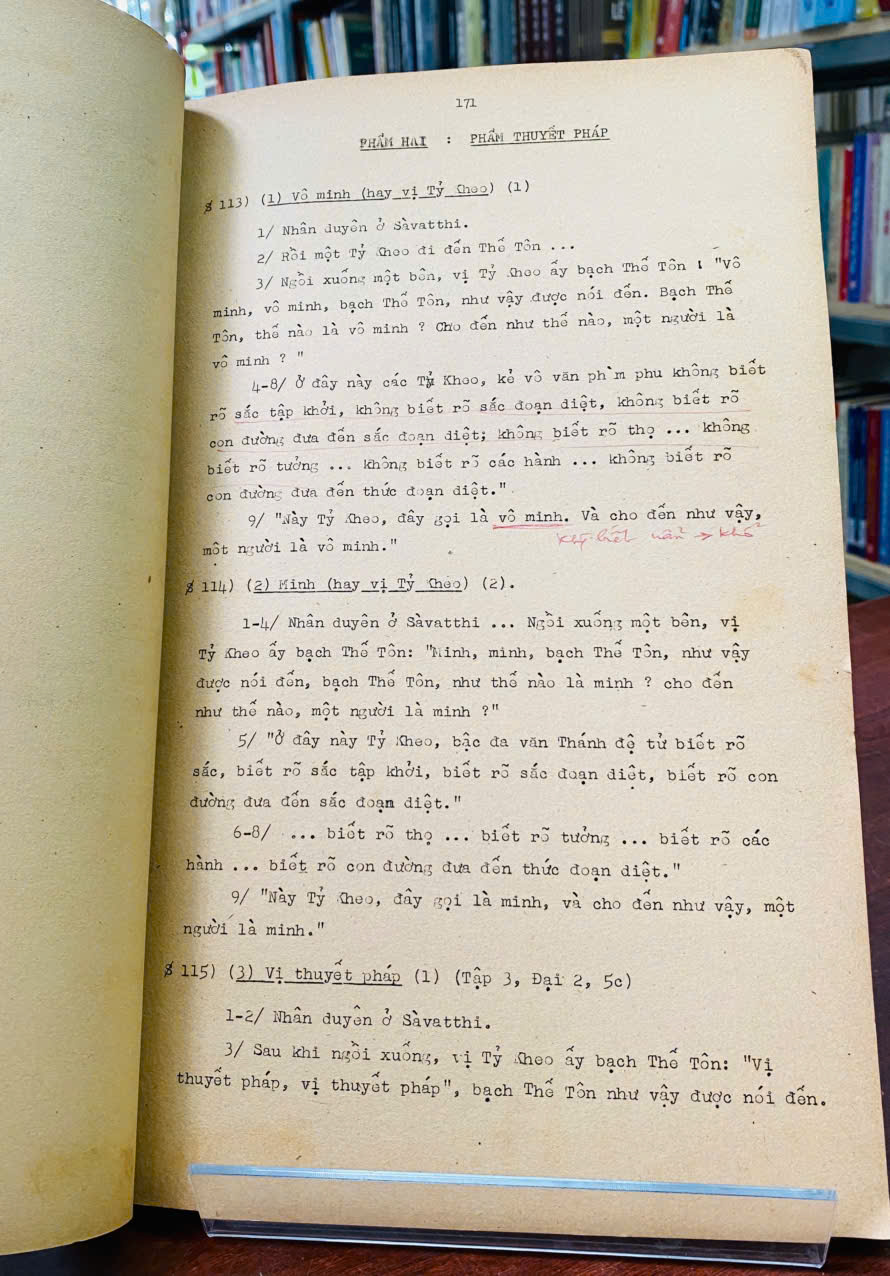 171
PHẨM HAI : PHẨM THUYẾT PHÁP
§ 113) (1) Vô minh (hay vị Tỷ Kheo) (1)
1/ Nhân duyên ở Sàvatthi.
2/ Rồi một Tỷ Kheo đi đến Thế Tôn ...
3/ Ngồi xuống một bên, vị Tỷ Kheo ấy bạch Thế Tôn : "Vô
minh, vô minh, bạch Thế Tôn, như vậy được nói đến. Bạch Thế
Tôn, thế nào là vô minh ? Cho đến như thế nào, một người là
vô minh ? "
4-8/ Ở đây này các Tỷ Kheo, kẻ vô văn phàm phu không biết
rõ sắc tập khởi, không biết rõ sắc đoạn diệt, không biết rõ
con đường đưa đến sắc đoạn diệt; không biết rõ thọ ... không
biết rõ tưởng ... không biết rõ các hành ... không biết rõ
con đường đưa đến thức đoạn diệt."
9/ "Này Tỷ Kheo, đây gọi là vô minh. Và cho đến như vậy,
một người là vô minh."
biết uẩn → khổ
§ 114) (2) Minh (hay vị Tỷ Kheo) (2).
1-4/ Nhân duyên ở Sàvatthi ... Ngồi xuống một bên, vị
Tỷ Kheo ấy bạch Thế Tôn: "Minh, minh, bạch Thế Tôn, như vậy
được nói đến, bạch Thế Tôn, như thế nào là minh ? cho đến
như thế nào, một người là minh ?"
5/ "Ở đây này Tỷ Kheo, bậc đa văn Thánh đệ tử biết rõ
sắc, biết rõ sắc tập khởi, biết rõ sắc đoạn diệt, biết rõ con
đường đưa đến sắc đoạn diệt."
6-8/ ... biết rõ thọ ... biết rõ tưởng ... biết rõ các
hành ... biết rõ con đường đưa đến thức đoạn diệt."
9/ "Này Tỷ Kheo, đây gọi là minh, và cho đến như vậy, một
người là minh."
§ 115) (3) Vị thuyết pháp (1) (Tập 3, Đại 2, 5c)
1-2/ Nhân duyên ở Sàvatthi.
3/ Sau khi ngồi xuống, vị Tỷ Kheo ấy bạch Thế Tôn: "Vị
thuyết pháp, vị thuyết pháp", bạch Thế Tôn như vậy được nói đến.